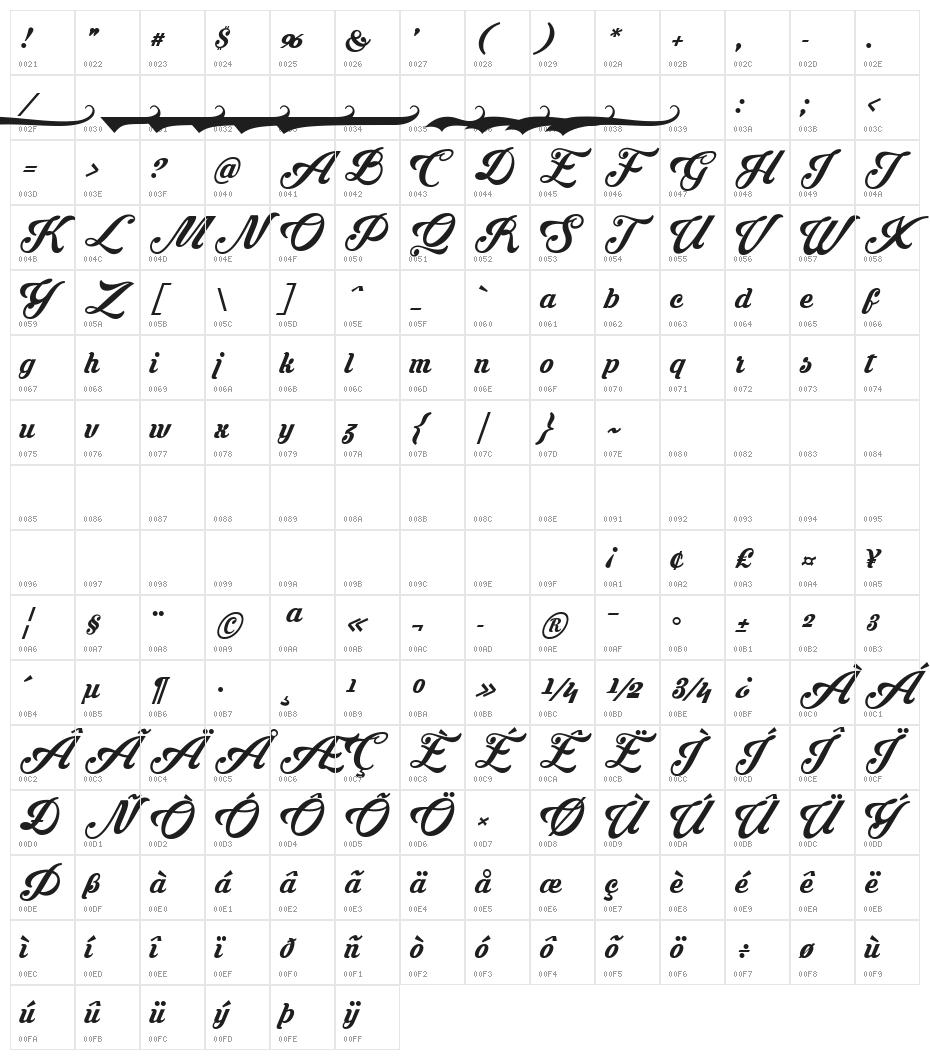 ! " # $ % & ' ( ) * + , - .
0021 0022 0023 0024 0025 0026 0027 0028 0029 002A 002B 002C 002D 002E
/ : ; <
002F 0030 0031 0032 0033 0034 0035 0036 0037 0038 0039 003A 003B 003C
= > ? @ A B C D E F G H I J
003D 003E 003F 0040 0041 0042 0043 0044 0045 0046 0047 0048 0049 004A
K L M N O P Q R S T U V W X
004B 004C 004D 004E 004F 0050 0051 0052 0053 0054 0055 0056 0057 0058
Y Z [ \ ] ^ _ ` a b c d e f
0059 005A 005B 005C 005D 005E 005F 0060 0061 0062 0063 0064 0065 0066
g h i j k l m n o p q r s t
0067 0068 0069 006A 006B 006C 006D 006E 006F 0070 0071 0072 0073 0074
u v w x y z { | } ~
0075 0076 0077 0078 0079 007A 007B 007C 007D 007E 0080 0082 0083 0084
0085 0086 0087 0088 0089 008A 008B 008C 008E 0091 0092 0093 0094 0095
¡ ¢ £ ¤ ¥
0096 0097 0098 0099 009A 009B 009C 009E 009F 00A1 00A2 00A3 00A4 00A5
¦ § ¨ © ª « ¬ - ® ¯ ° ± ² ³
00A6 00A7 00A8 00A9 00AA 00AB 00AC 00AD 00AE 00AF 00B0 00B1 00B2 00B3
´ µ ¶ · ¸ ¹ º » ¼ ½ ¾ ¿ À Á
00B4 00B5 00B6 00B7 00B8 00B9 00BA 00BB 00BC 00BD 00BE 00BF 00C0 00C1
Â Ã Ä Å Æ Ç È É Ê Ë Ì Í Î Ï
00C2 00C3 00C4 00C5 00C6 00C7 00C8 00C9 00CA 00CB 00CC 00CD 00CE 00CF
Ð Ñ Ò Ó Ô Õ Ö × Ø Ù Ú Û Ü Ý
00D0 00D1 00D2 00D3 00D4 00D5 00D6 00D7 00D8 00D9 00DA 00DB 00DC 00DD
Þ ß à á â ã ä å æ ç è é ê ë
00DE 00DF 00E0 00E1 00E2 00E3 00E4 00E5 00E6 00E7 00E8 00E9 00EA 00EB
ì í î ï ð ñ ò ó ô õ ö ÷ ø ù
00EC 00ED 00EE 00EF 00F0 00F1 00F2 00F3 00F4 00F5 00F6 00F7 00F8 00F9
ú û ü ý þ ÿ
00FA 00FB 00FC 00FD 00FE 00FF